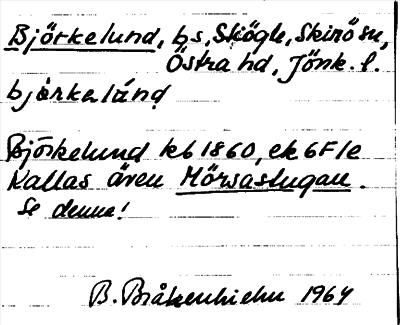 Björkelund, bs, Skögle, Skirö sn,
Östra hd, Jönk. l.
bjørkəlánd
Björkelund kb 1860, ek 6F1e
Kallas även Mörsastugan.
Se denna!
B. Bråkenhielm 1964